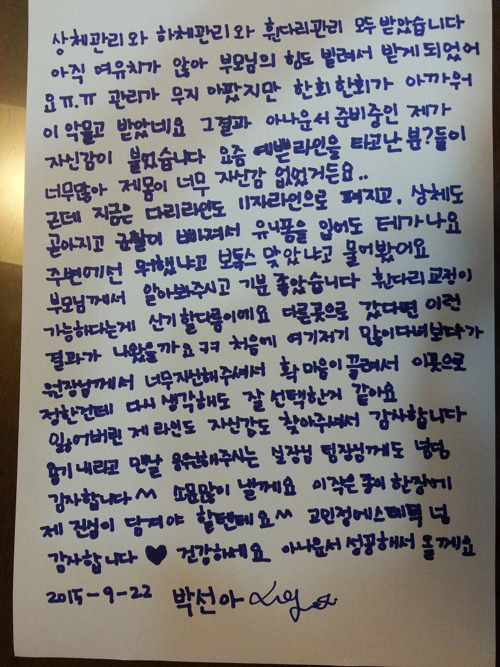 상체관리와 하체관리와 휜다리관리 모두 받았습니다
아직 여유치가 않아 부모님의 힘도 빌려서 받게되었어
요ㅠ.ㅠ 관리가 무지 아팠지만 한회한회가 아까워
이 악물고 받았네요 그결과 아나운서 준비중인 제가
자신감이 붙었습니다 요즘 예쁜라인을 타고난 분?들이
너무많아 제몸이 너무 자신감 없었거든요..
근데 지금은 다리라인도 11자라인으로 펴지고, 상체도
곧아지고 군살이 빠져서 유니폼을 입어도 테가나요
주변에선 뭐했냐고 보톡스 맞았냐고 물어봤어요
부모님께서 알아봐주시고 기분 좋았습니다 휜다리교정이
가능하다는게 신기할다름이에요 다른곳으로 갔다면 이런
결과가 나왔을까요ㅋㅋ 처음에 여기저기 많이다녀보다가
원장님께서 너무친절해주셔서 확 마음이끌려서 이곳으로
정한건데 다시 생각해도 잘 선택한거 같아요
잃어버린 제 라인도 자신감도 찾아주셔서 감사합니다
용기내라고 맨날 응원해주시는 실장님 팀장님께도 넘넘
감사합니다^^ 소문많이 낼께요 이작은 종이 한장에
제 진심이 담겨야 할텐데요^^ 고민정에스테틱 넘
감사합니다 ♥ 건강하세요 아나운서 성공해서 올께요
2015-9-22 박선아